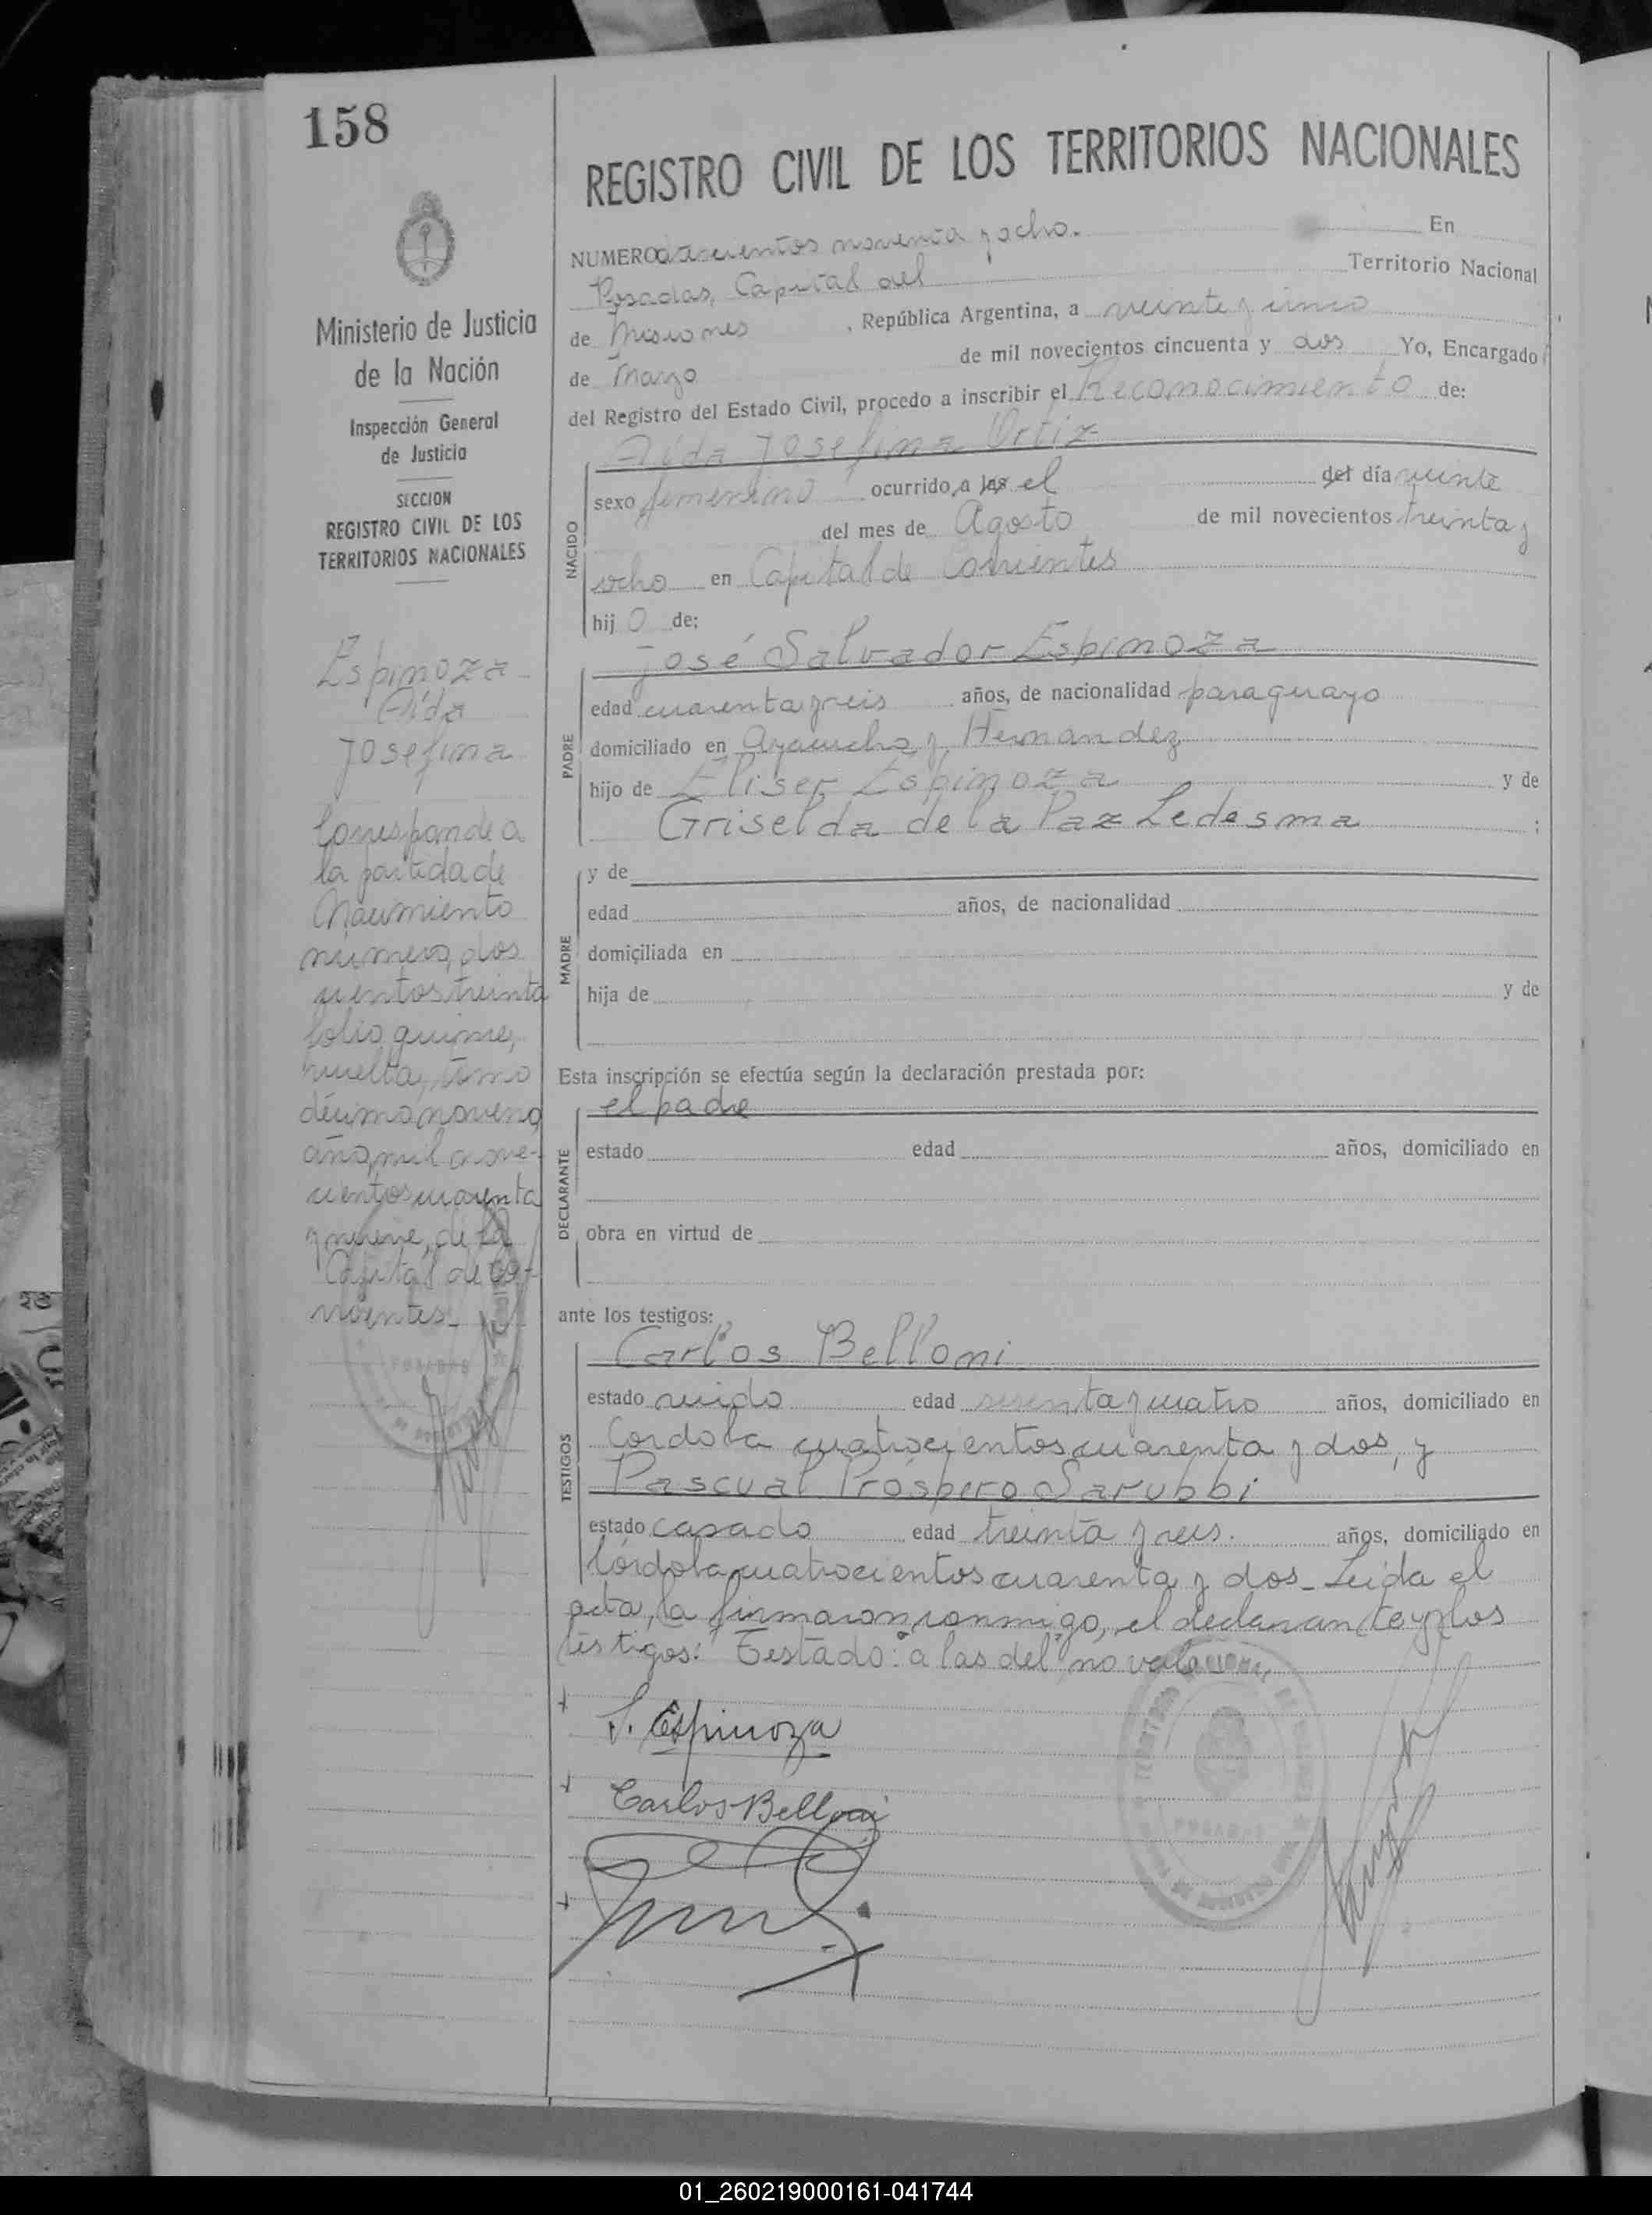 158
Ministerio de Justicia
de la Nación
Inspección General
de Justicia
SECCION
REGISTRO CIVIL DE LOS
TERRITORIOS NACIONALES
Espinoza
Aída
Josefina
Corresponde a
la partida de
Nacimiento
número, dos
cientos treinta
folio quince,
vuelta, tomo
décimo noveno
año, mil nove-
cientos cuarenta
y nueve, de la
Capital de Co-
rrientes.
REGISTRO CIVIL DE LOS TERRITORIOS NACIONALES
NUMERO doscientos noventa y ocho. En
Posadas, Capital del Territorio Nacional
de Misiones , República Argentina, a veinte y cinco
de Marzo de mil novecientos cincuenta y dos Yo, Encargado
del Registro del Estado Civil, procedo a inscribir el Reconocimiento de:
Aída Josefina Ortiz
NACIDO
sexo femenino ocurrido, a las el del día veinte
del mes de Agosto de mil novecientos treinta y
ocho en Capital de Corrientes
hij o de:
José Salvador Espinoza
PADRE
edad cuarenta y seis años, de nacionalidad paraguayo
domiciliado en Ayacucho y Hernandez
hijo de Eliser Espinoza y de
Griselda de la Paz Ledesma ;
MADRE
y de
edad años, de nacionalidad
domiciliada en
hija de y de
Esta inscripción se efectúa según la declaración prestada por:
el padre
DECLARANTE
estado edad años, domiciliado en
obra en virtud de
ante los testigos:
Carlos Belloni
TESTIGOS
estado viudo edad sesenta y cuatro años, domiciliado en
Cordoba cuatrocientos cuarenta y dos, y
Pascual Próspero Sarubbi
estado casado edad treinta y seis. años, domiciliado en
Córdoba cuatrocientos cuarenta y dos_ Leida el
acta, la firmaron conmigo, el declarante y los
testigos: Testado: "a las del" no vale
S. Espinoza
Carlos Belloni
POSADAS
01_260219000161-041744